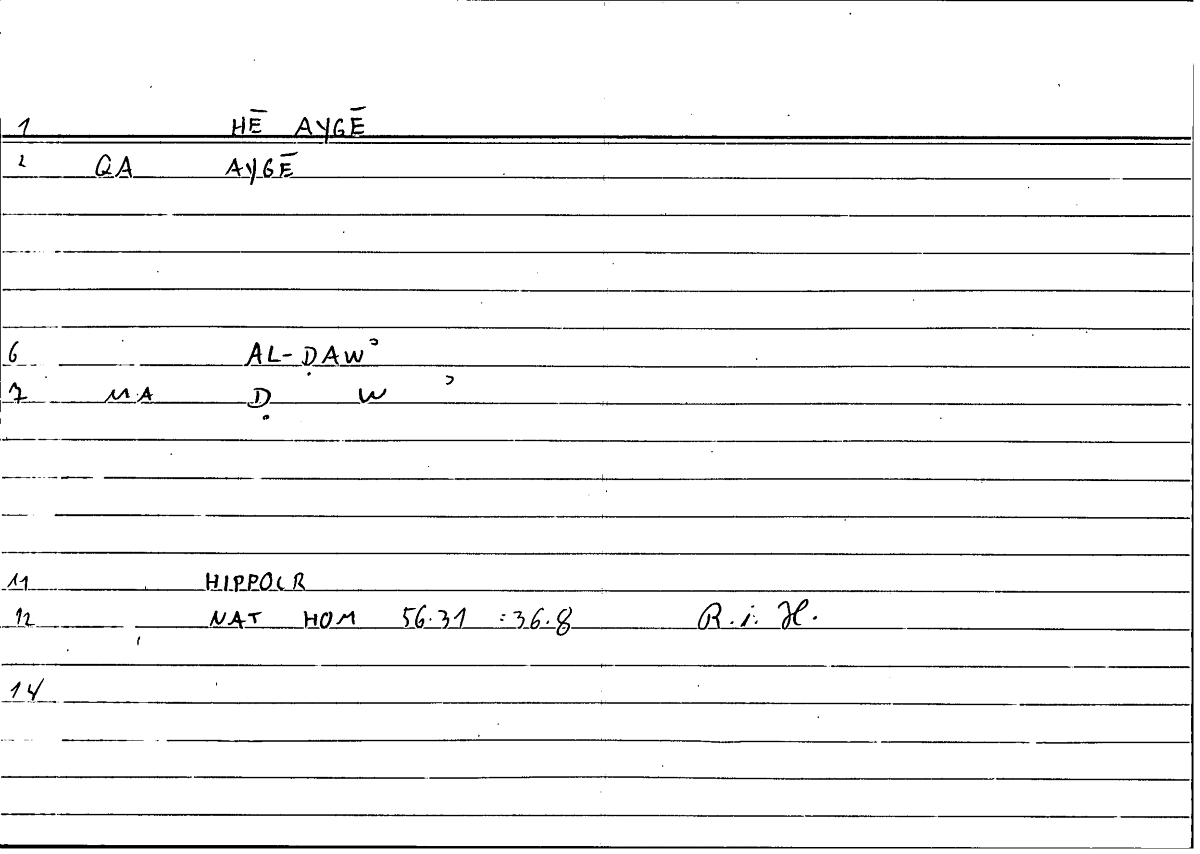 1 HĒ AYGĒ
2 QA AYGĒ
6 AL-ḌAWʾ
7 MA Ḍ W ʾ
11 HIPPOCR
12 NAT HOM 56.31 :36.8 R.i.H.
14